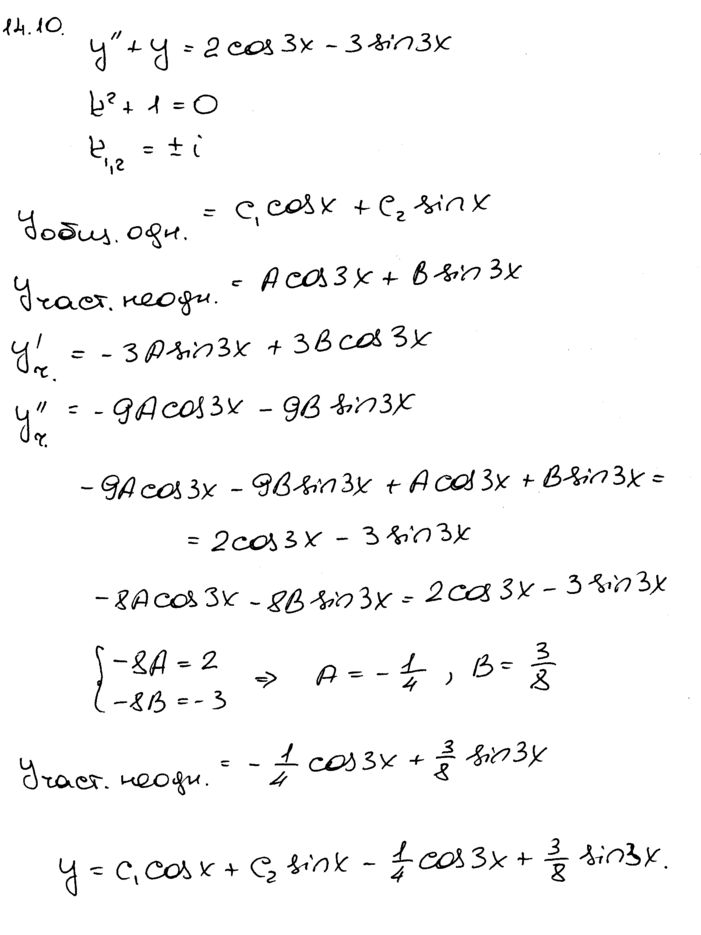 14.10.
y'' + y = 2cos3x - 3sin3x
k² + 1 = 0
k₁,₂ = ± i
yобщ. одн. = C₁cosx + C₂sinx
yчаст. неодн. = Acos3x + Bsin3x
y'ч. = -3Asin3x + 3Bcos3x
y''ч. = -9Acos3x - 9Bsin3x
-9Acos3x - 9Bsin3x + Acos3x + Bsin3x =
= 2cos3x - 3sin3x
-8Acos3x - 8Bsin3x = 2cos3x - 3sin3x
{ -8A = 2
-8B = -3 ⇒ A = -1/4, B = 3/8
yчаст. неодн. = -1/4 cos3x + 3/8 sin3x
y = C₁cosx + C₂sinx - 1/4 cos3x + 3/8 sin3x.